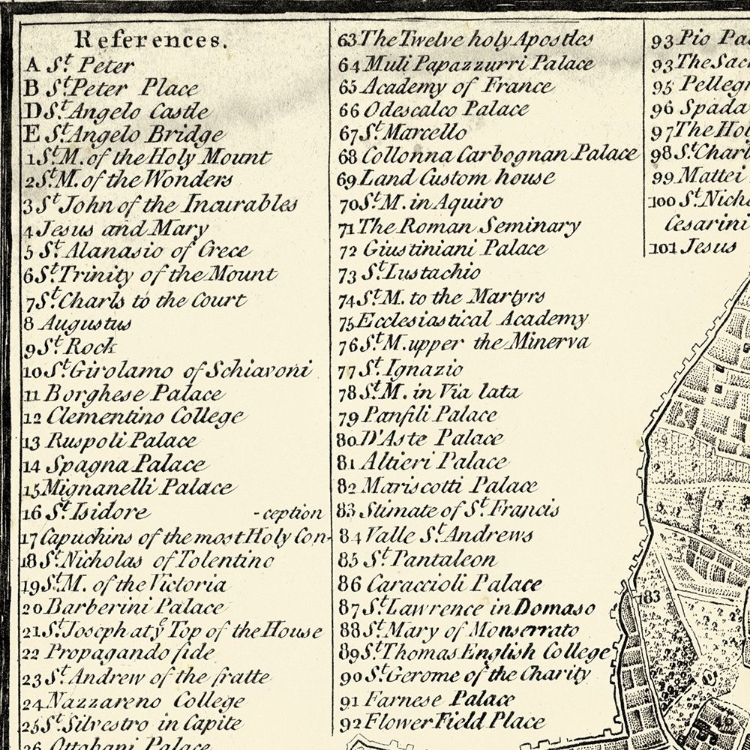 References.
A St. Peter
B St. Peter Place
D St. Angelo Castle
E St. Angelo Bridge
1 St. M. of the Holy Mount
2 St. M. of the Wonders
3 St. John of the Incurables
4 Jesus and Mary
5 St. Alanasio of Grece
6 St. Trinity of the Mount
7 St. Charls to the Court
8 Augustus
9 St. Rock
10 St. Girolamo of Schiavoni
11 Borghese Palace
12 Clementino College
13 Ruspoli Palace
14 Spagna Palace
15 Mignanelli Palace
16 St. Isidore -ception
17 Capuchins of the most Holy Con-
18 St. Nicholas of Tolentino
19 St. M. of the Victoria
20 Barberini Palace
21 St. Joseph at ye Top of the House
22 Propagando fide
23 St. Andrew of the fratte
24 Nazzareno College
25 St. Silvestro in Capite
26 Ottobani Palace
63 The Twelve holy Apostles
64 Muti Papazzurri Palace
65 Academy of France
66 Odescalco Palace
67 St. Marcello
68 Collonna Carbognan Palace
69 Land Custom house
70 St. M. in Aquiro
71 The Roman Seminary
72 Giustiniani Palace
73 St. Eustachio
74 St. M. to the Martyrs
75 Ecclesiastical Academy
76 St. M. upper the Minerva
77 St. Ignazio
78 St. M. in Via lata
79 Panfili Palace
80 D'Aste Palace
81 Altieri Palace
82 Mariscotti Palace
83 Stimate of St. Francis
84 Valle St. Andrews
85 St. Pantaleon
86 Caraccioli Palace
87 St. Lawrence in Domaso
88 St. Mary of Monserrato
89 St. Thomas English College
90 St. Gerome of the Charity
91 Farnese Palace
92 Flower Field Place
93 Pio Pa
93 The Sac
95 Pellegr
96 Spada
97 The Ho
98 St. Charl
99 Mattei
100 St. Nich
Cesarini
101 Jesus
183